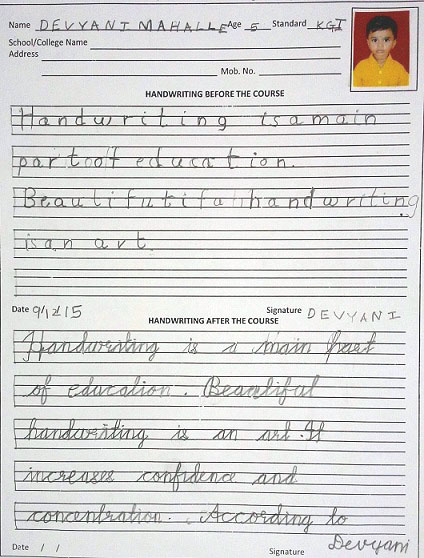 Name DEVYANI MAHALLE Age 5 Standard KGI
School/College Name
Address
Mob. No.
HANDWRITING BEFORE THE COURSE
Handwriting is a main
part oof education.
Beautifutiful handwriting
is an art.
Date 9/12/15 Signature DEVYANI
HANDWRITING AFTER THE COURSE
Handwriting is a main part
of education. Beautiful
handwriting is an art. It
increases confidence and
concentration. According to
Date / / Signature Devyani